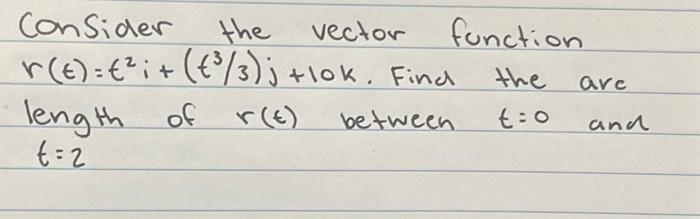 Consider the vector function
r(t)=t²i+(t³/3)j+10k. Find the arc
length of r(t) between t=0 and
t=2